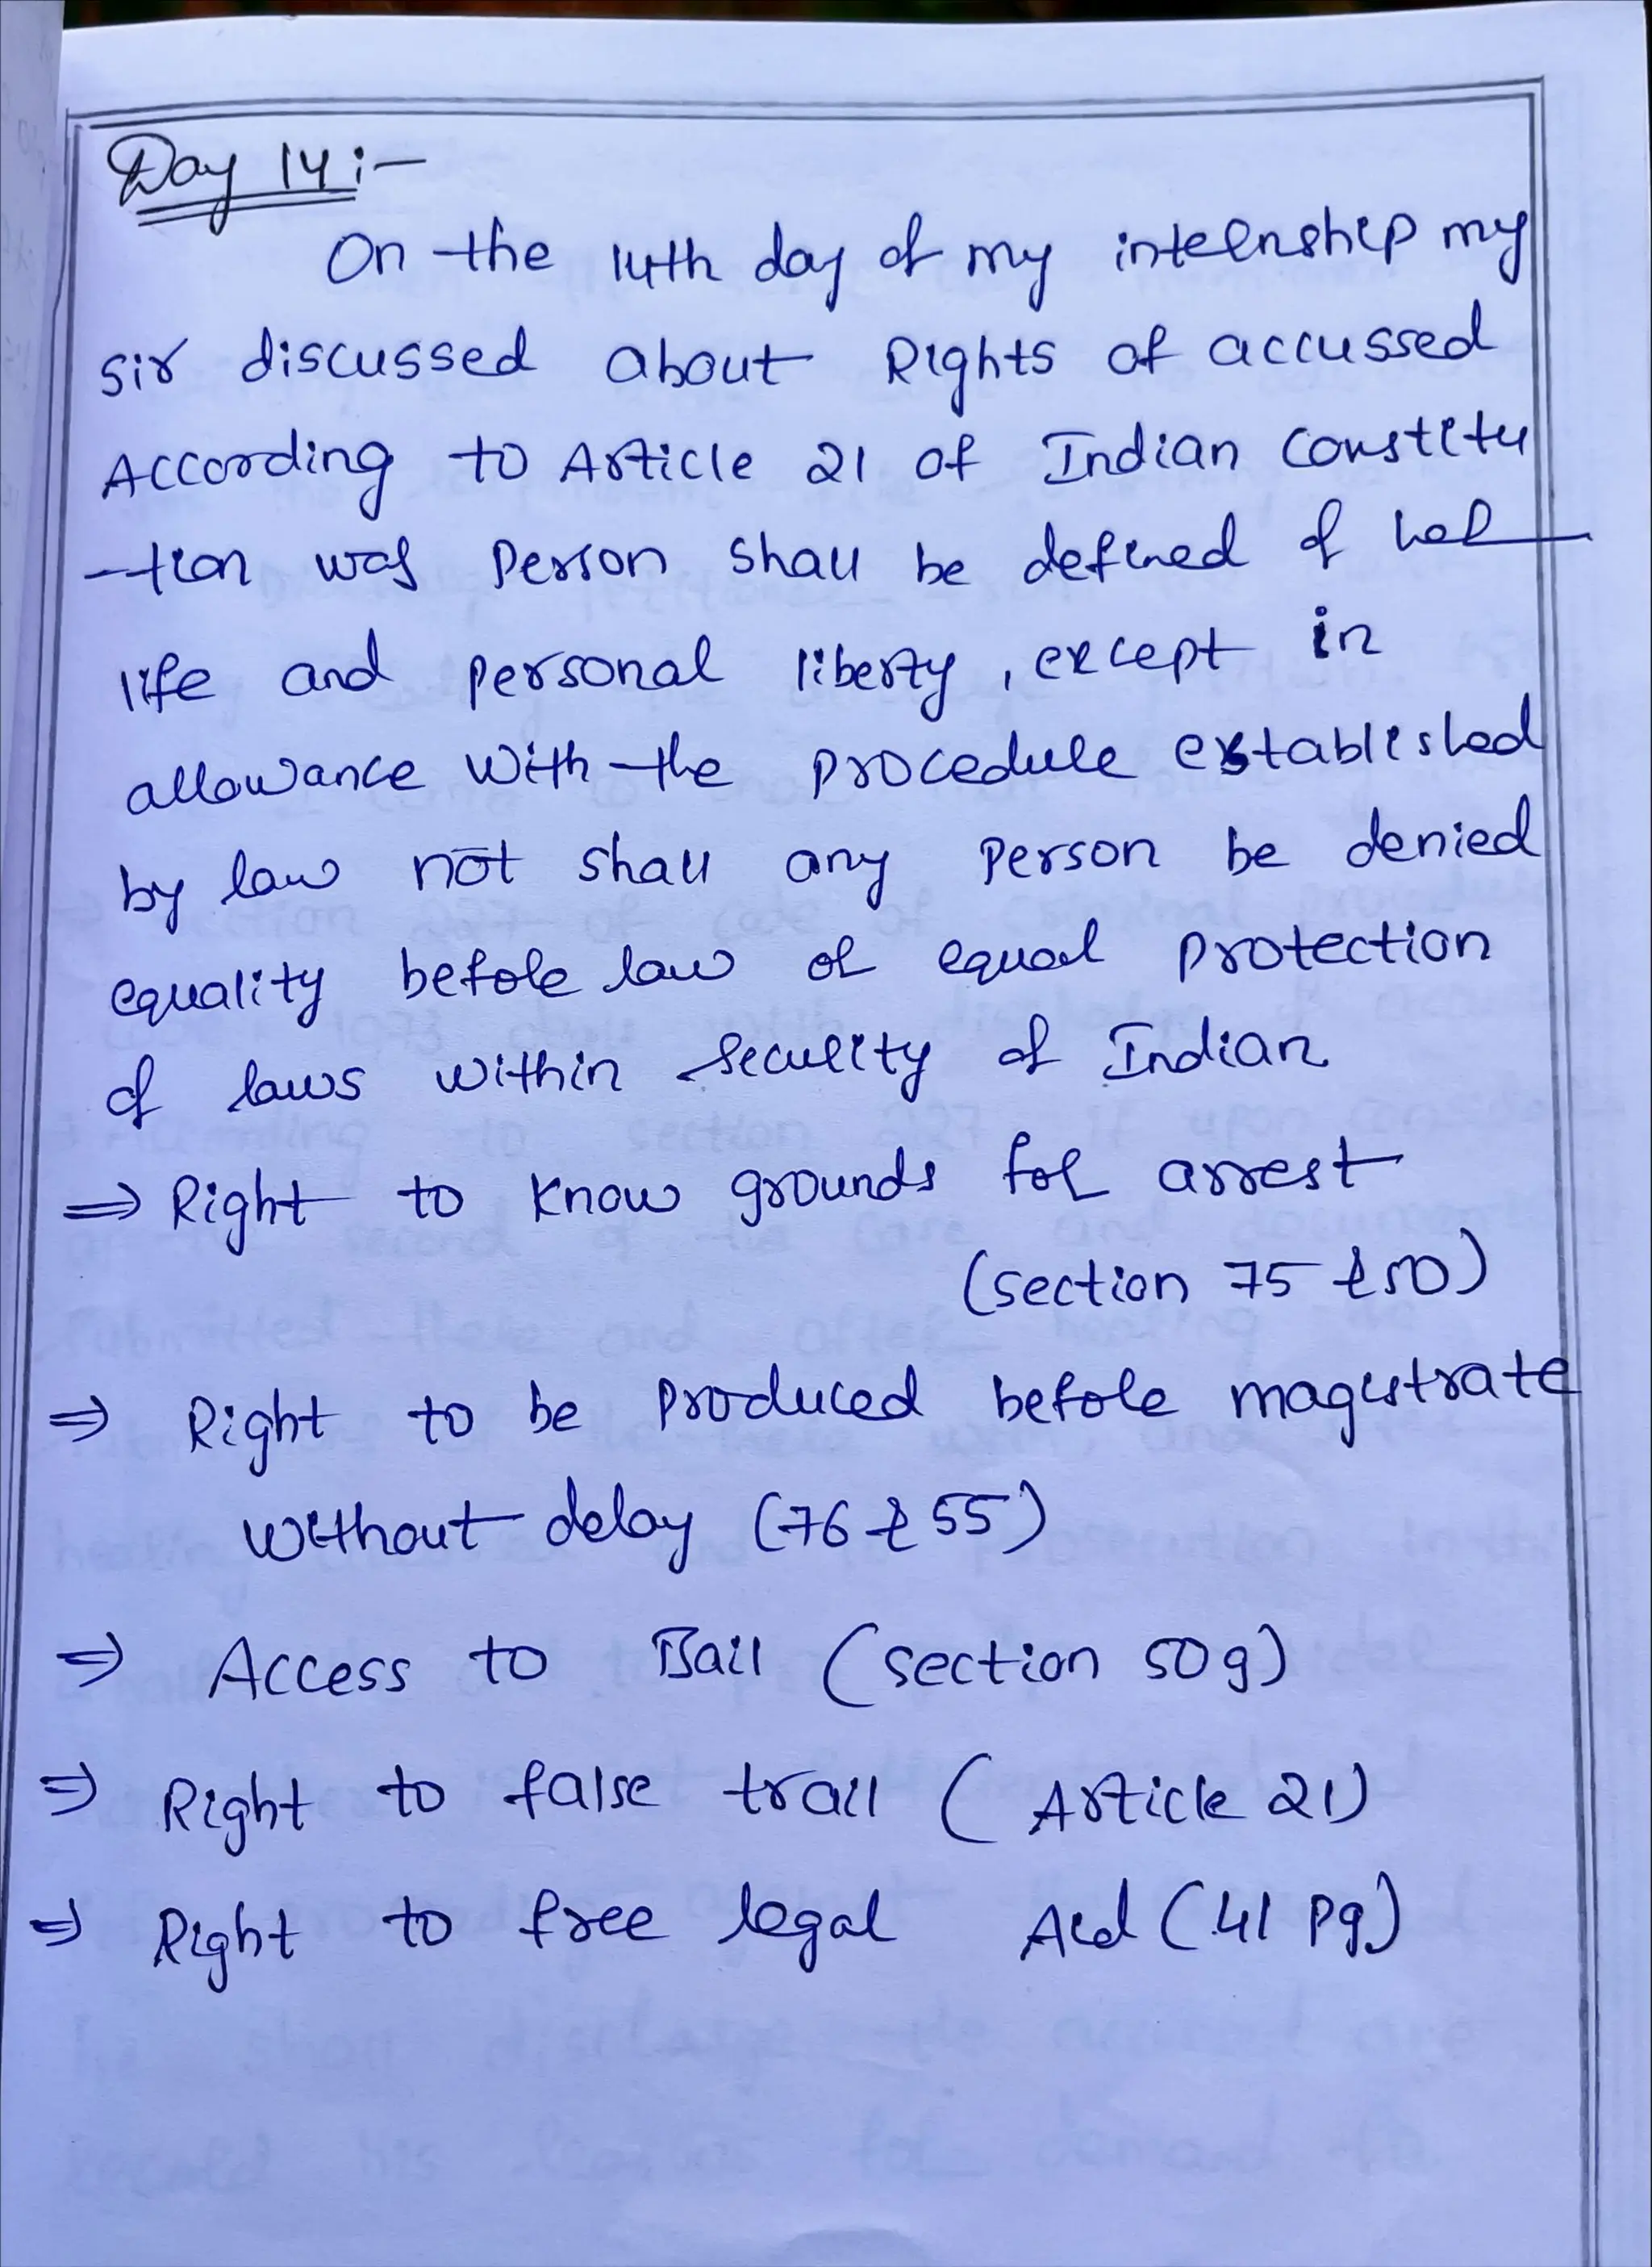 Day 14:-
On the 14th day of my internship my
sir discussed about Rights of accussed
According to Article 21 of Indian constitu
-tion was Person shall be defined of her
life and personal liberty, except in
allowance with the procedure established
by law not shall any Person be denied
equality before law or equal protection
of laws within security of Indian
⇒ Right to know grounds for arrest
(section 75 & 50)
⇒ Right to be produced before magistrate
without delay (76 & 55)
⇒ Access to Bail (section 50g)
⇒ Right to false trail (Article 21)
⇒ Right to free legal Aid (41 pg)